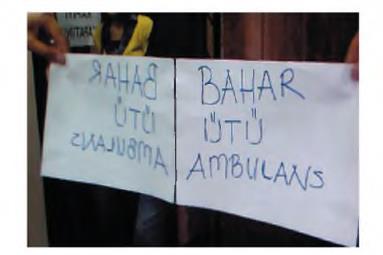 BAHAR
ÜTÜ
AMBULANS
BAHAR
ÜTÜ
AMBULANS